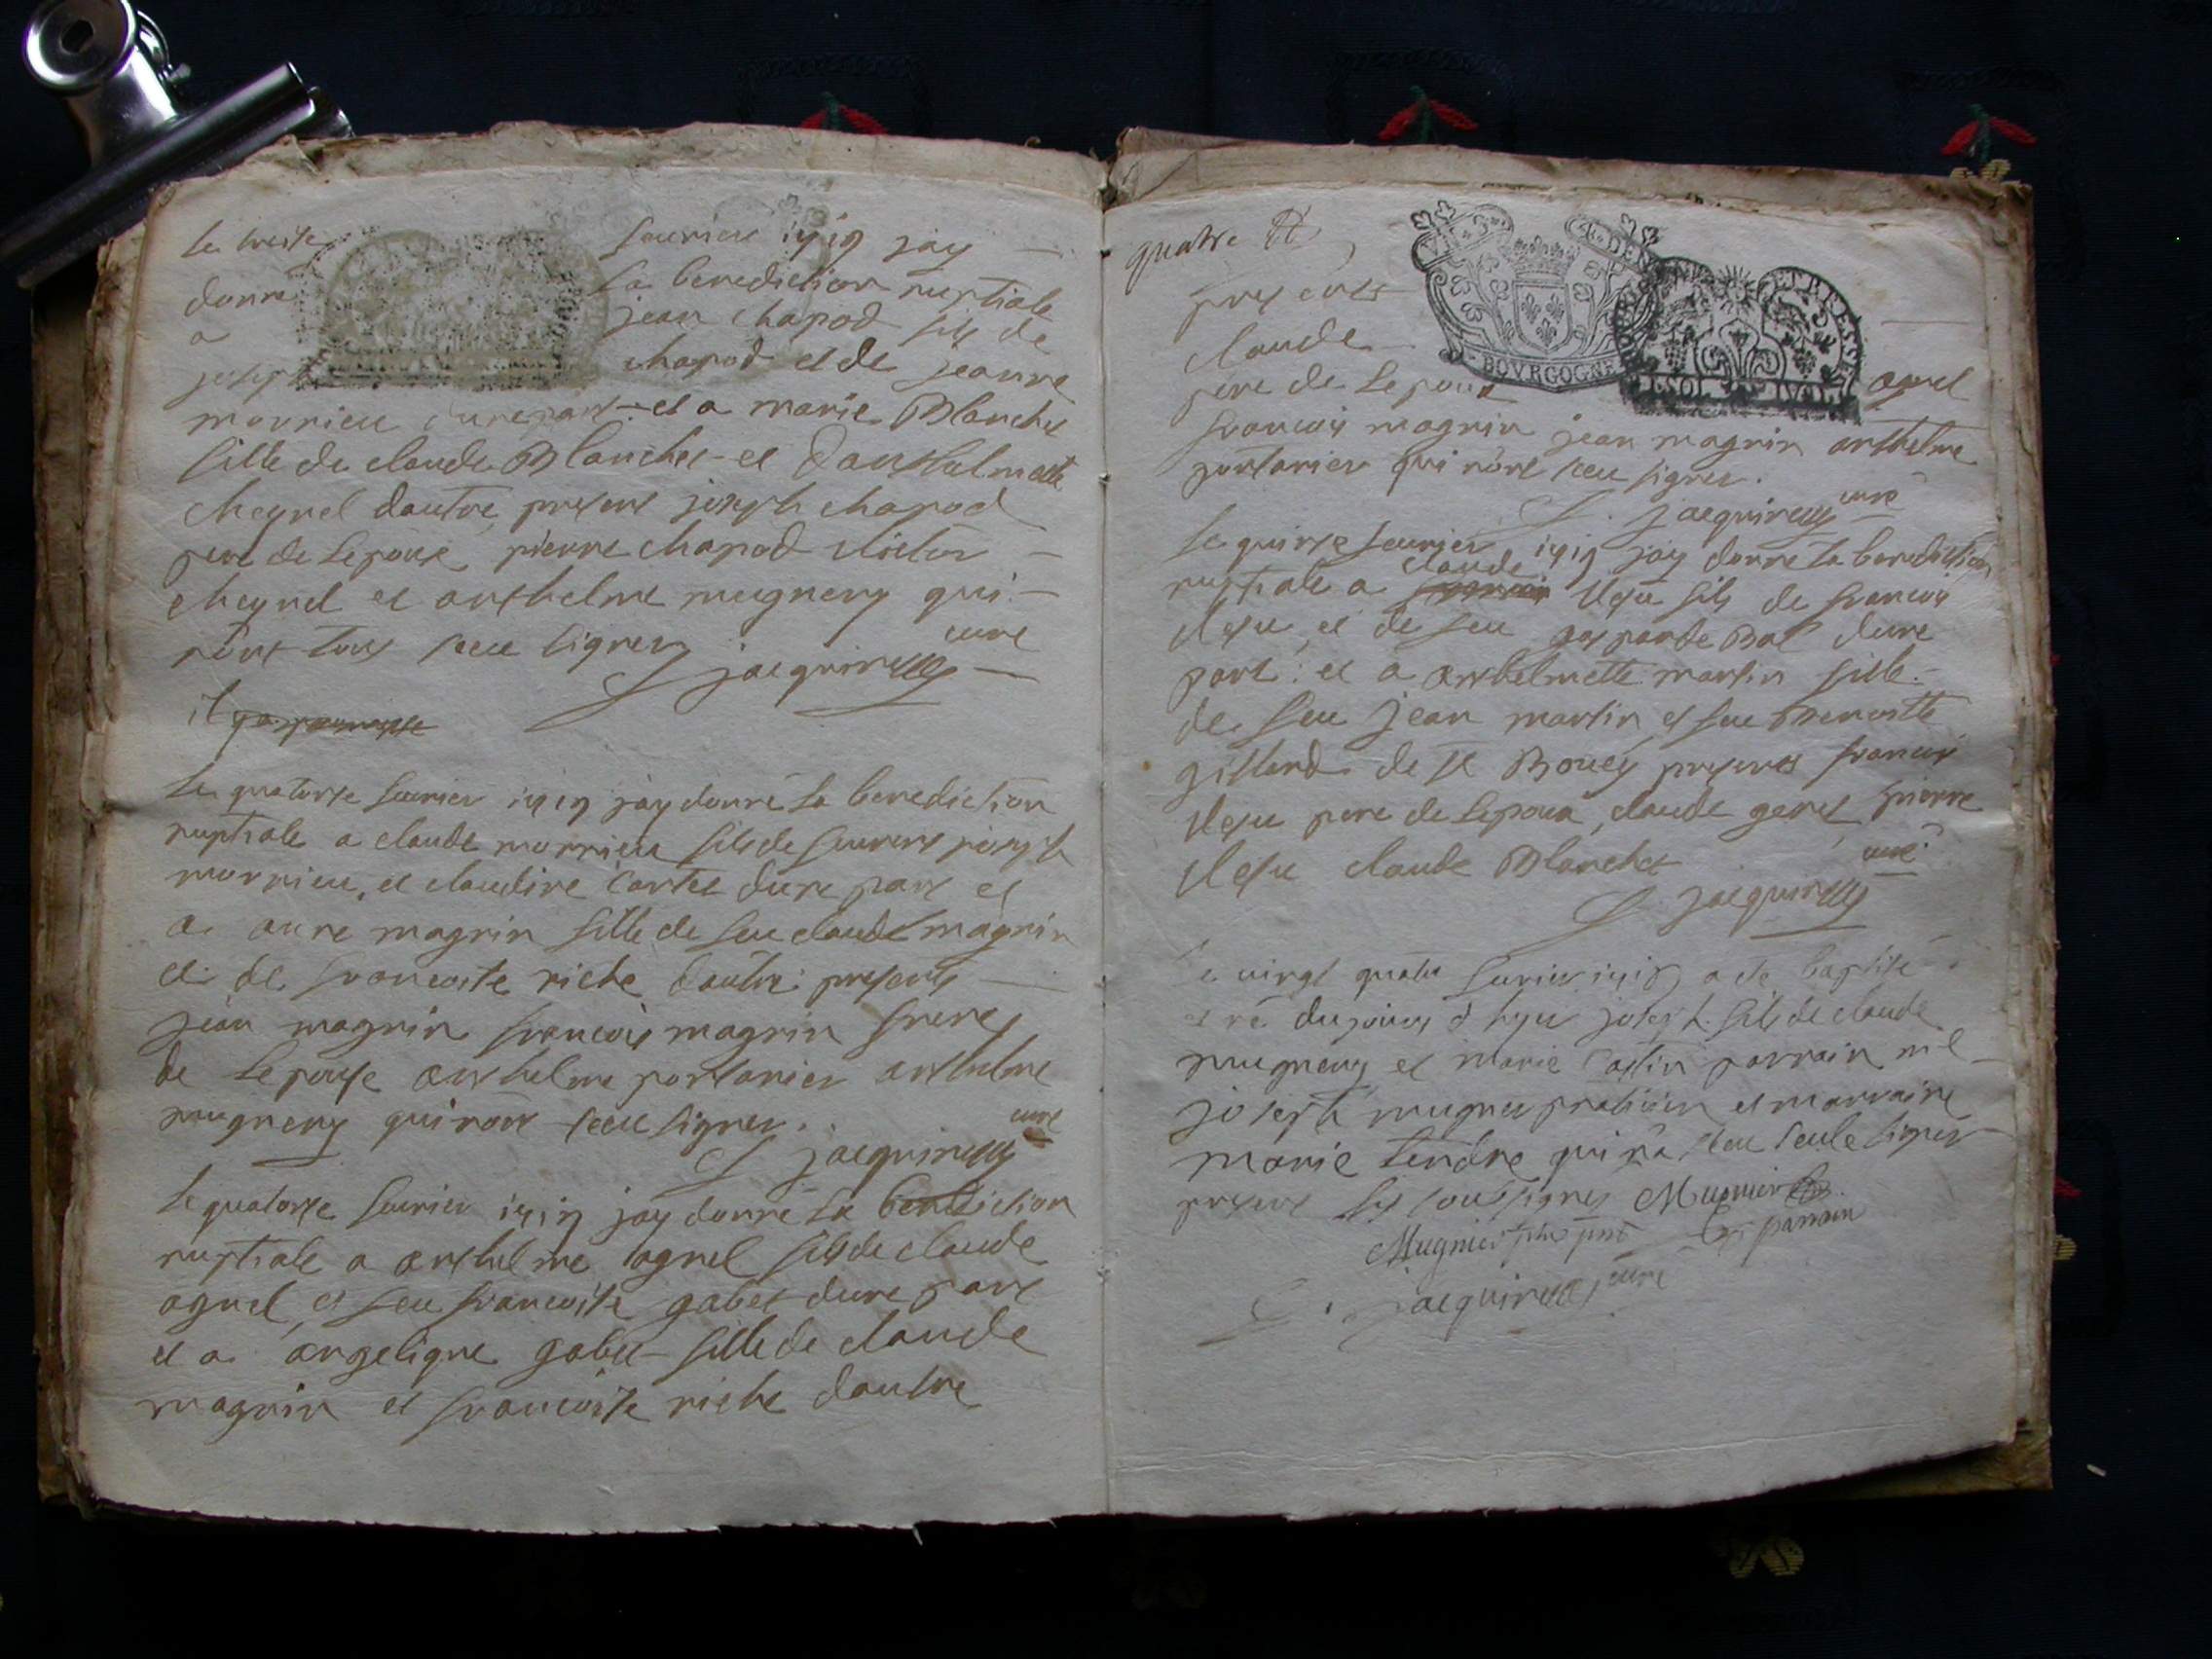 le treise feurier 1719 jay
donné la benediction nuptiale
a jean chapod fils de
joseph chapod et de jeanne
monnieu dune part et a marie Blanchet
fille de claude Blanchet et Danthelmette
cheynel dautre present joseph chapod
pere de lepoux pierre chapod
cheynel et anthelme mugneny qui
nont tous sceu signer
curé
S jacquine
il
le quatorse feurier 1719 jay donné la benediction
nuptiale a claude monnieu fils de joseph
monnieu, et claudine dune part et
a anne magnin fille de feu claude magnin
et de francoise riche dautre presents
jean magnin francois magnin freres
de lepouse anthelme portanier anthelme
mugneny qui nont sceu signer.
curé
S jacquine
le quatorse feurier 1719 jay donné la benediction
nuptiale a anthelme agnel fils de claude
agnel, et feu francoise gabet dune part
et a angelique gabet fille de claude
magnin et francoise riche dautre
quatre
DEN ET BRESSE
BOVRGOGNE SOL
presents
claude agnel
pere de lepoux
francois magnin jean magnin anthelme
portanier qui nont sceu signer.
curé
S. jacquine
le quinse feurier 1719 jay donné la benediction
claude
nuptiale a fils de francois
et de feu gasparde Bal dune
part: et a anthelmette martin fille
de feu jean martin et feu Benoitte
de st presents francois
pere de lepoux, claude pierre
claude Blanchet
curé
S jacquine
le vingt quatre feurier 1719 a été baptisé
et né du jour d hyer joseph fils de claude
mugneny et marie parrain me
joseph mugnier praticien et marraine
marie tendre qui na sceu seule signer
present les soussignes Mugnier
Mugnier parrain
S. jacquine curé